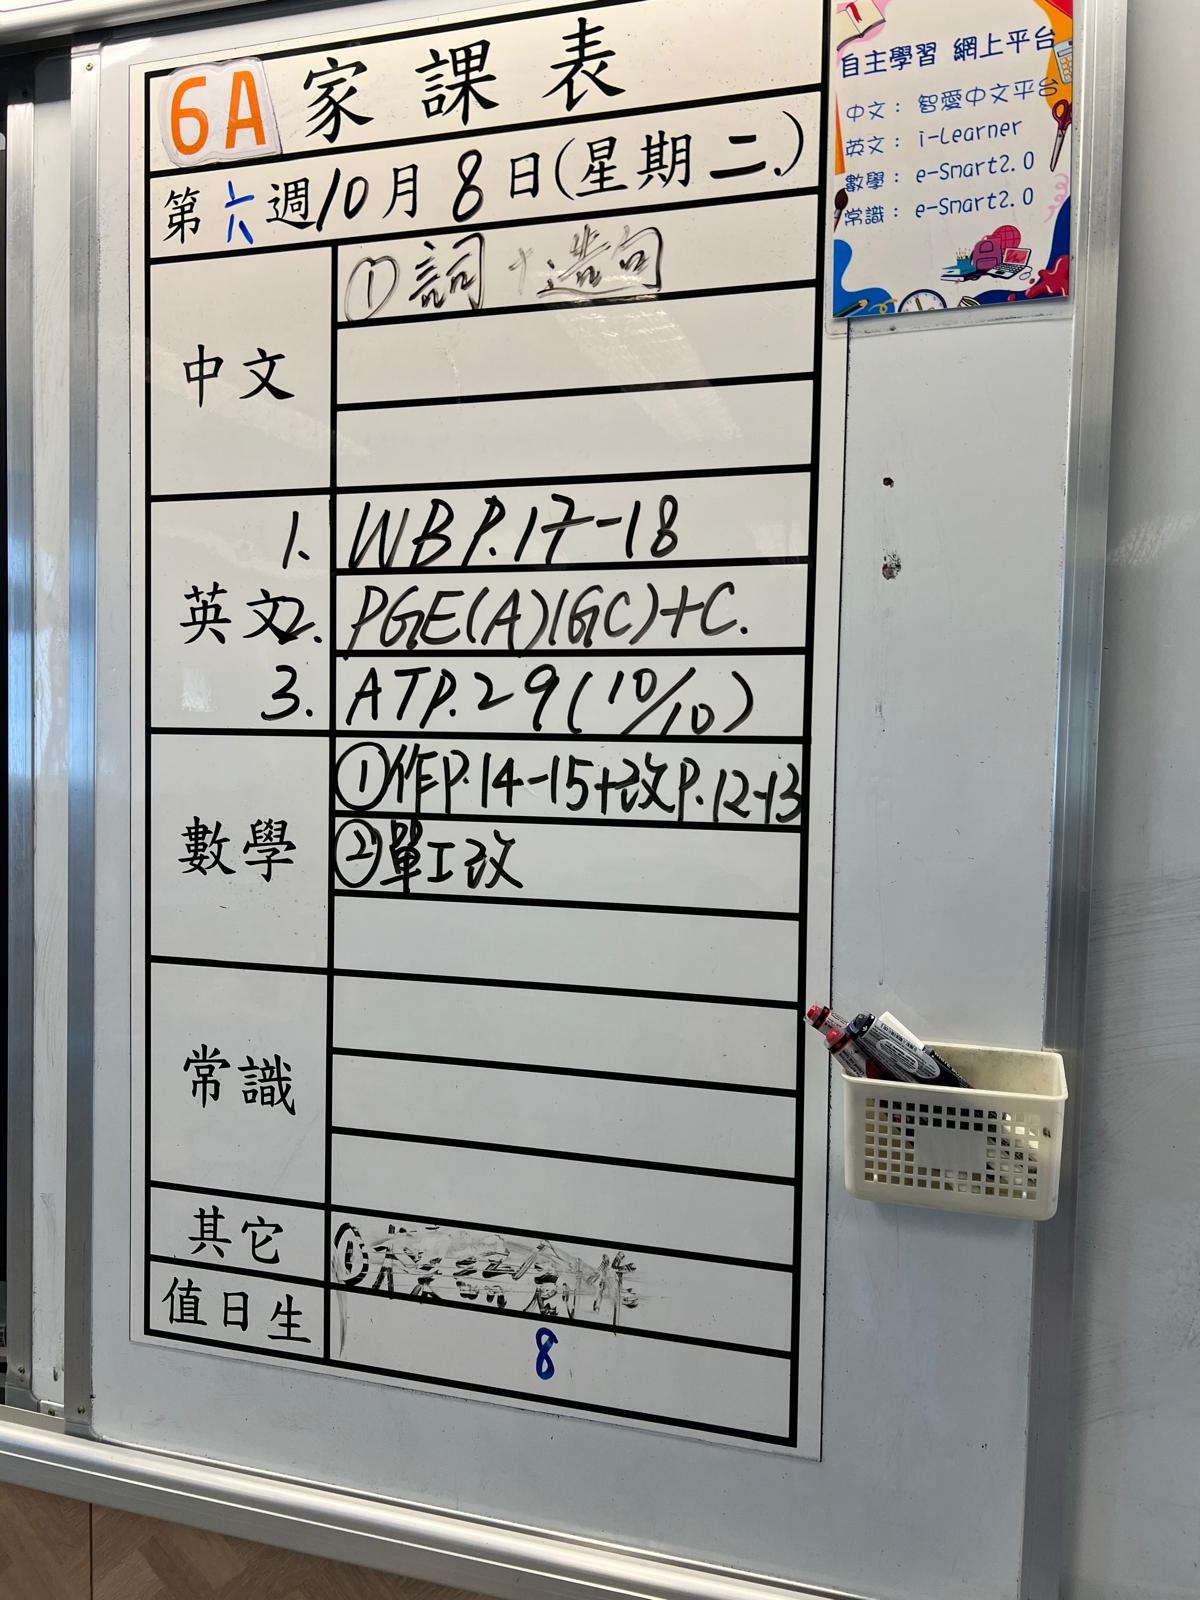 6A 家課表
第六週10月8日(星期二.)
中文
①詞+造句
英文
1. WB P.17-18
2. PGE(A)(GC)+C.
3. ATP.29(10/10)
數學
①作P.14-15+改P.12-13
②單工改
常識
其它
①
值日生
8
自主學習 網上平台
中文: 智愛中文平台
英文: i-Learner
數學: e-Smart2.0
常識: e-Smart2.0